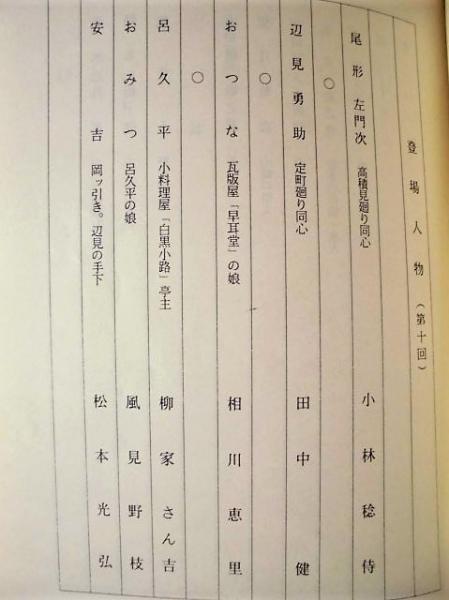 登場人物（第十回）
尾形左門次 高積見廻り同心 小林稔侍
○
辺見勇助 定町廻り同心 田中健
○
おつな 瓦版屋「早耳堂」の娘 相川恵里
○
呂久平 小料理屋「白黒小路」亭主 柳家さん吉
おみつ 呂久平の娘 風見野枝
安吉 岡ッ引き。辺見の手下 松本光弘